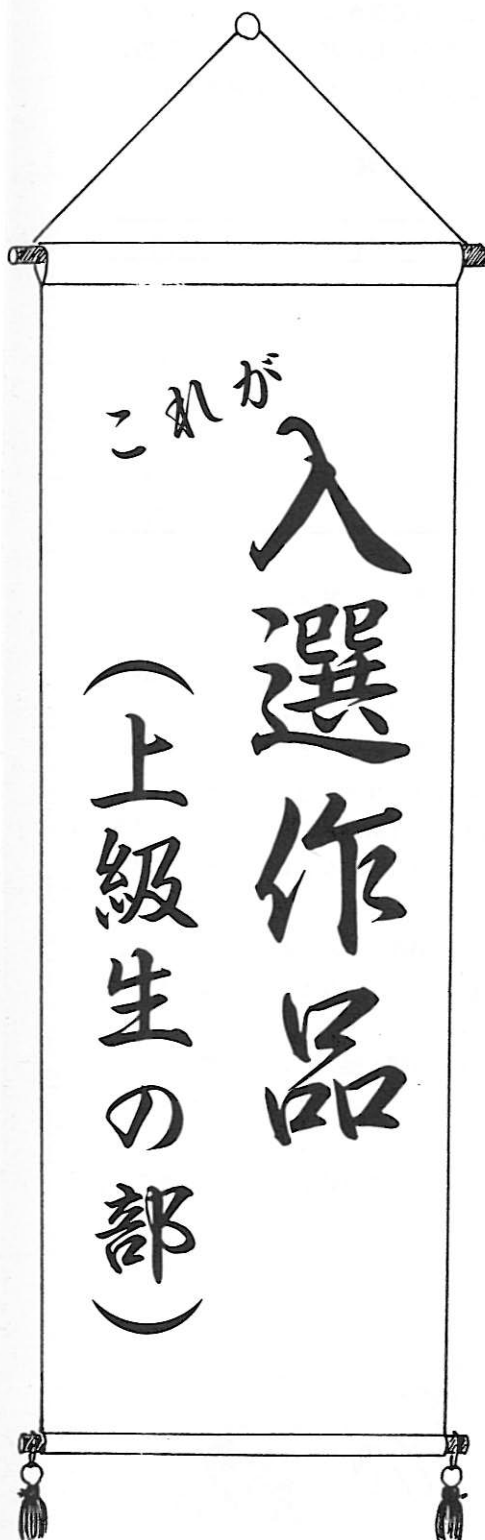 これが
入選作品
（上級生の部）